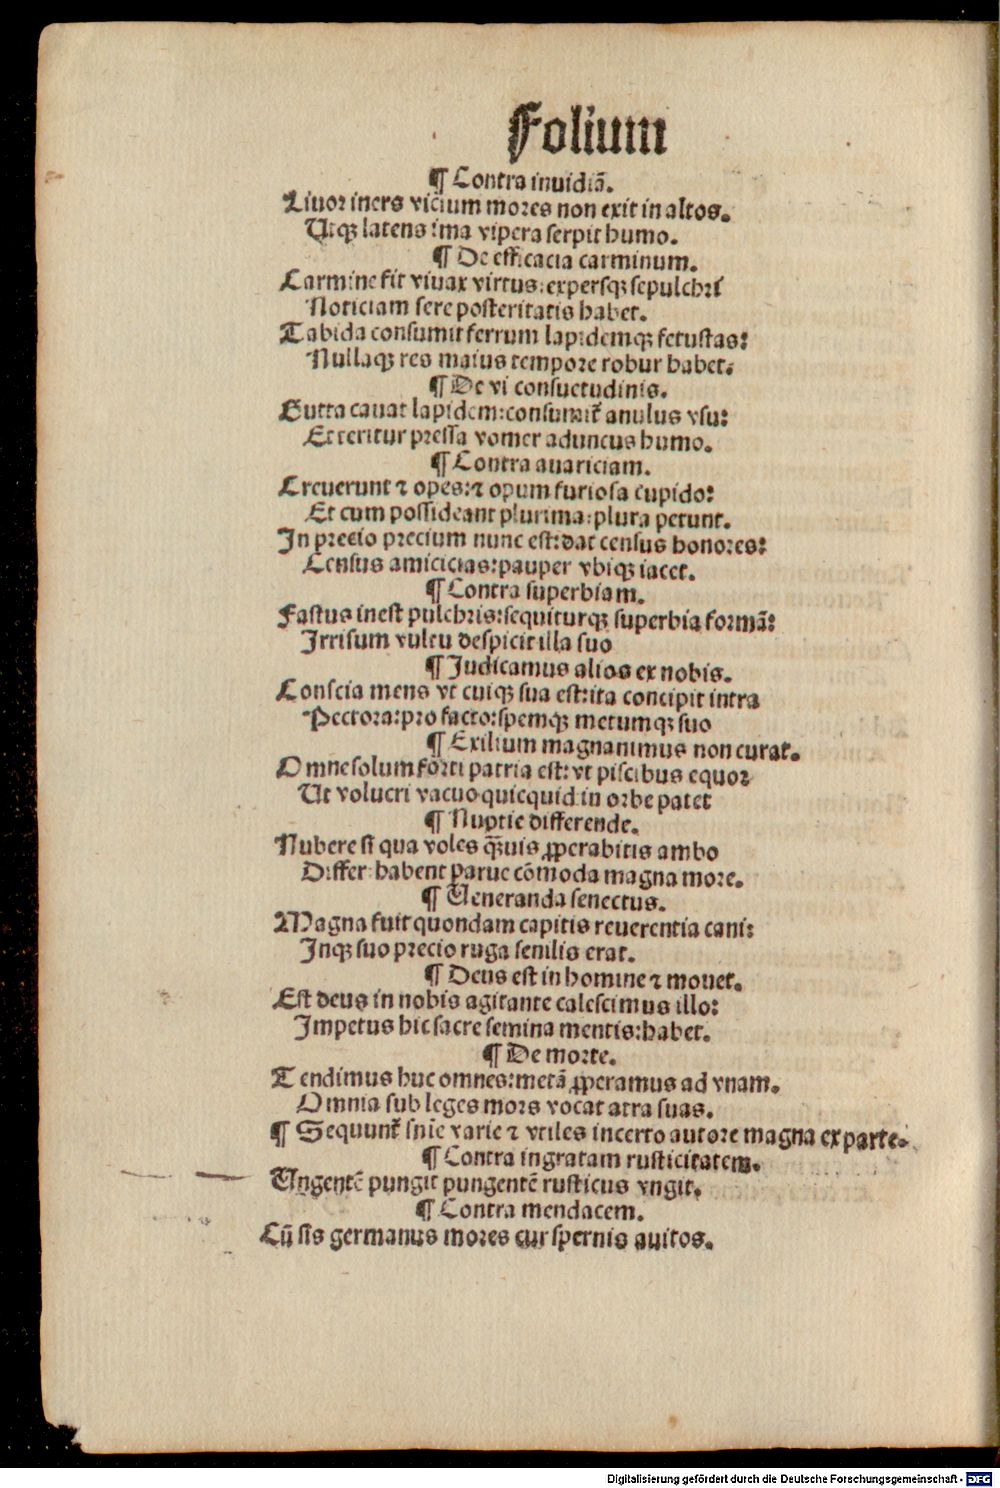 Folium
¶ Contra inuidiā.
Liuor iners vicium mores non exit in altos.
Utqꝫ latens ima vipera serpit humo.
¶ De efficacia carminum.
Carmine fit viuax virtus:expersqꝫ sepulchri
Noticiam sere posteritatis habet.
Tabida consumit ferrum lapidemqꝫ fetustas:
Nullaqꝫ res maius tempore robur habet.
¶ De vi consuetudinis.
Gutta cauat lapidem:consumit᷑ anulus vsu:
Et teritur pressa vomer aduncus humo.
¶ Contra auariciam.
Creuerunt ⁊ opes:⁊ opum furiosa cupido:
Et cum possideant plurima:plura petunt.
In precio precium nunc est:dat census honores:
Census amicicias:pauper vbiqꝫ iacet.
¶ Contra superbiam.
Fastus inest pulchris:sequiturqꝫ superbia formā:
Irrisum vultu despicit illa suo
¶ Judicamus alios ex nobis.
Conscia mens vt cuiqꝫ sua est:ita concipit intra
Pectora:pro facto:spemqꝫ metumqꝫ suo
¶ Exilium magnanimus non curat.
Omne solum forti patria est:vt piscibus equor
Ut volucri vacuo quicquid in orbe patet
¶ Nuptie differende.
Nubere si qua voles q̄uis ꝓperabitis ambo
Differ:habent parue cōmoda magna more.
¶ Ueneranda senectus.
Magna fuit quondam capitis reuerentia cani:
Inqꝫ suo precio ruga senilis erat.
¶ Deus est in homine ⁊ mouet.
Est deus in nobis agitante calescimus illo:
Impetus hic sacre semina mentis:habet.
¶ De morte.
Tendimus huc omnes:metā ꝓperamus ad vnam.
Omnia sub leges mors vocat atra suas.
¶ Sequunt᷑ snie varie ⁊ vtiles incerto autore magna ex parte.
¶ Contra ingratam rusticitatem.
Ungentē pungit pungentē rusticus vngit.
¶ Contra mendacem.
Cū sis germanus mores cur spernis auitos.
Digitalisierung gefördert durch die Deutsche Forschungsgemeinschaft - DFG